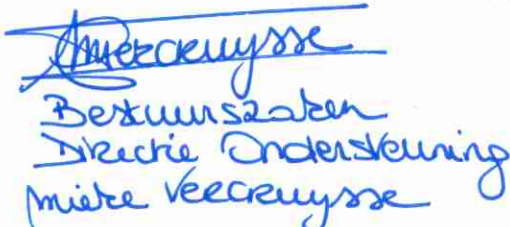 MVercruysse
Bestuurszaken
Directie Ondersteuning
Mieke Vercruysse